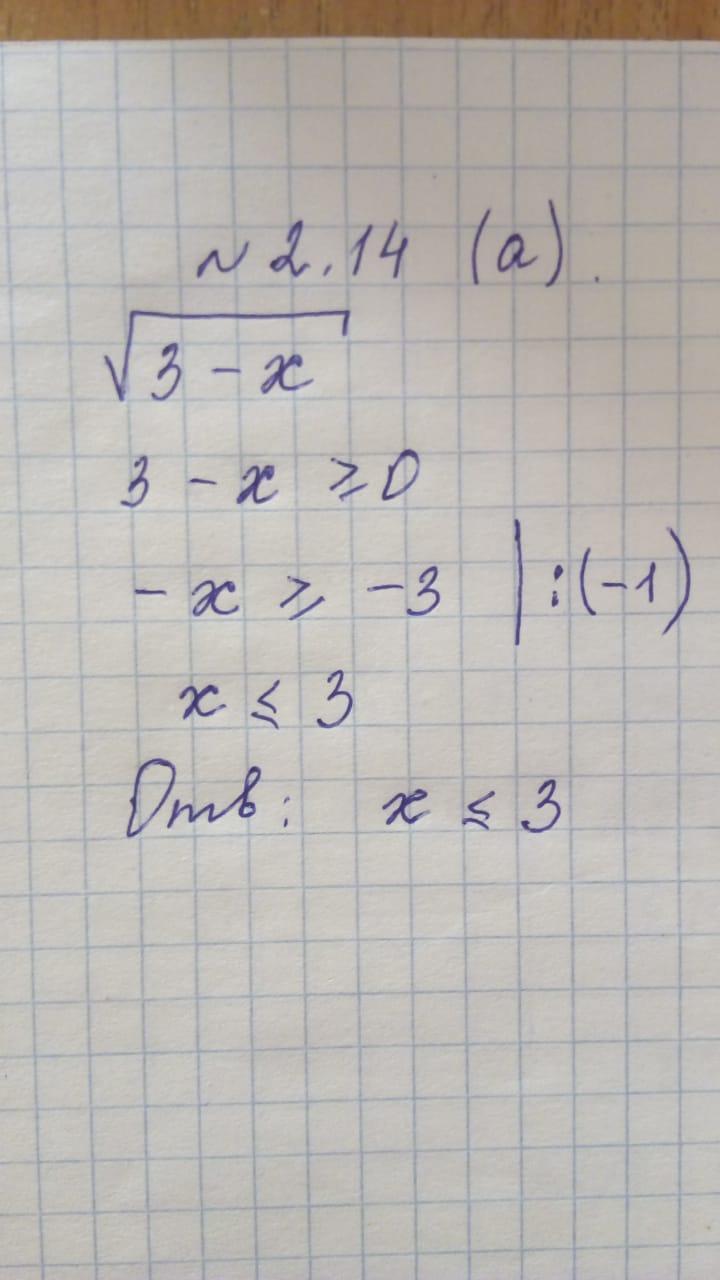 № 2.14 (а).
√3 - x
3 - x ⩾ 0
- x ⩾ -3 | :(-1)
x ⩽ 3
Отв: x ⩽ 3